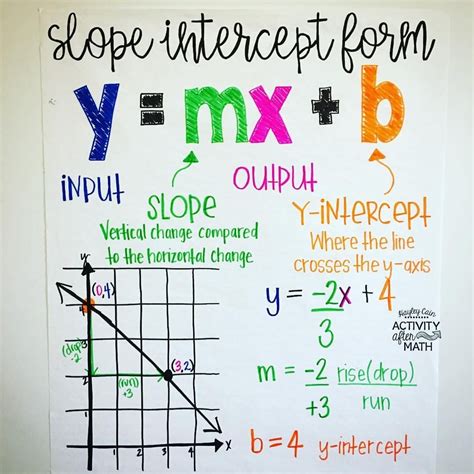 slope intercept form
y = mx + b
INPUT
OUTPUT
SLOPE
Vertical change compared
to the horizontal change
Y-INTERCEPT
Where the line
crosses the y-axis
y
(0,4)
4
3
(drop)
-2
(3,2)
2
(run)
+3
1
1 2 3 4
x
y = -2x + 4
3
Cain
ACTIVITY
after
MATH
m = -2 rise(drop)
+3 run
b = 4 y-intercept